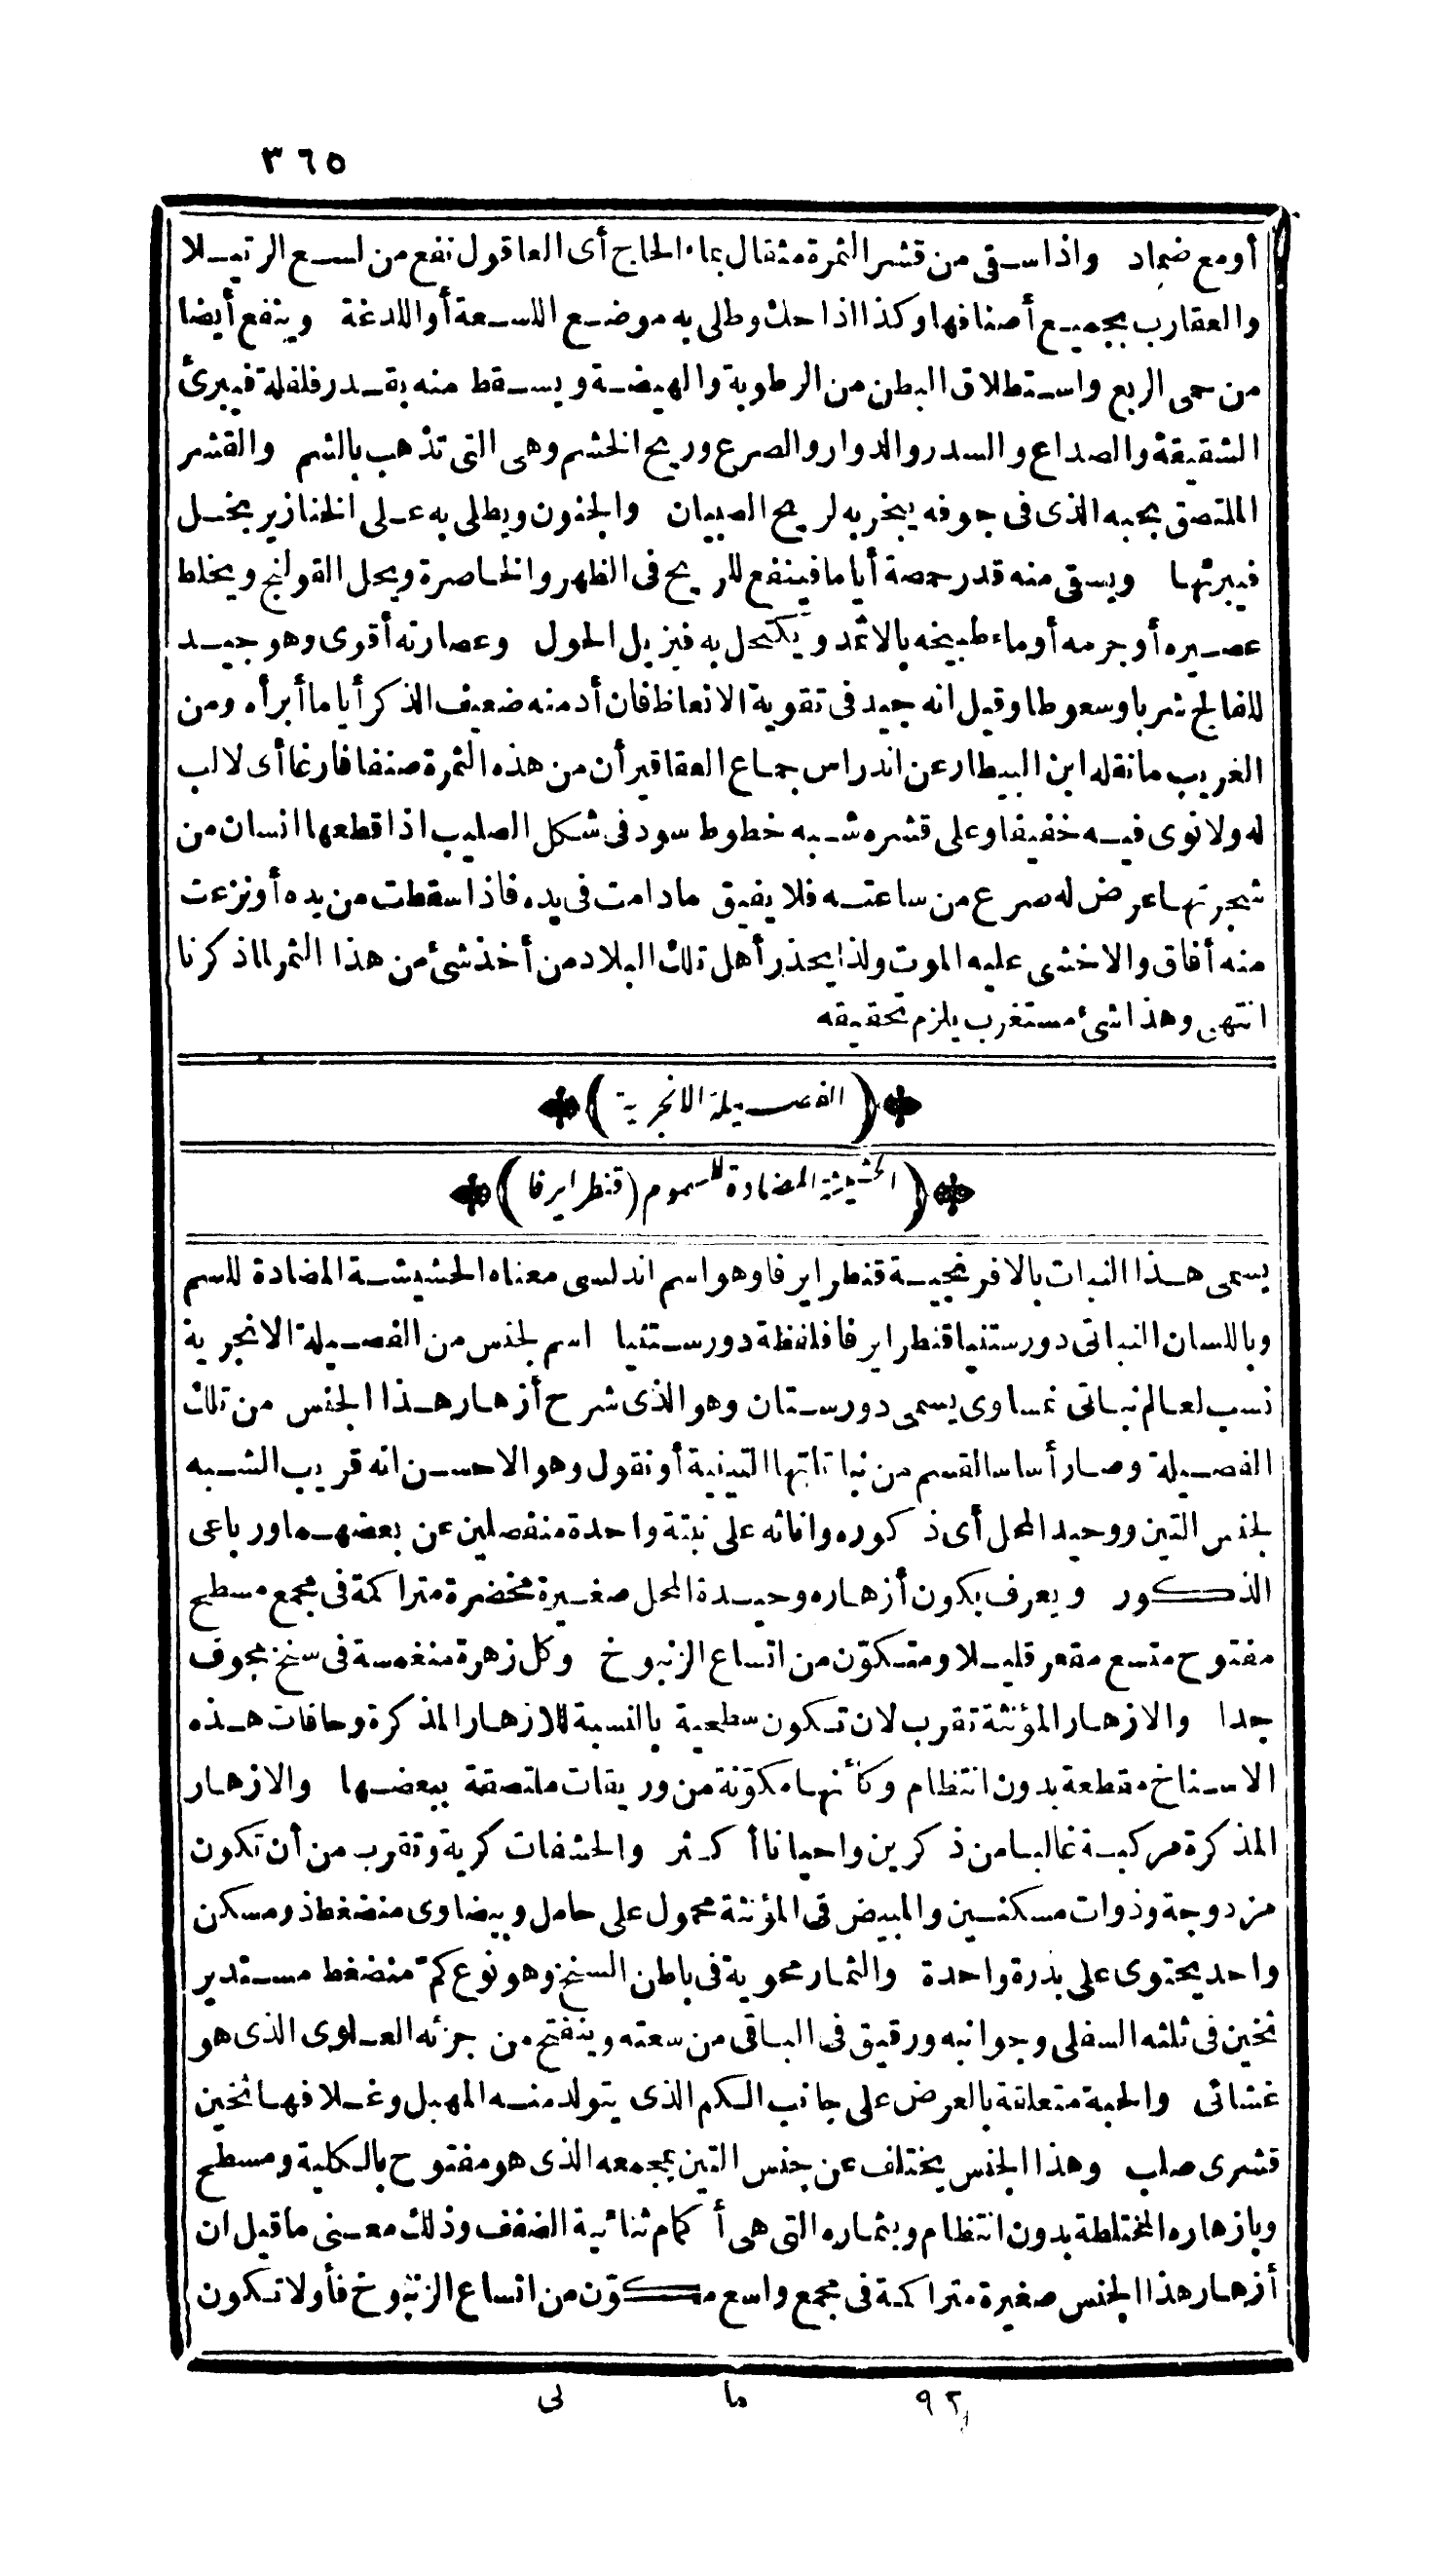 ٣٦٥
أو مع ضماد واذا سقى من قشر الثمرة مثقال بماء الحاج أى العاقول نفع من لسع الرتيلا
والعقارب بجميع أصنافها وكذا اذا حك وطلى به موضع اللسعة أو اللدغة وينفع أيضا
من حمى الربع واستطلاق البطن من الرطوبة والهيضة ويسقط منه بقدر فلفلة فيبرئ
الشقيقة والصداع والسدر والدوار والصرع وريح الخشم وهى التى تذهب بالشم والقشر
الملتصق بحبه الذى فى جوفه يبخر به لريح الصبيان والجنون ويطلى به على الخنازير بخل
فيبرئها ويسقى منه قدر حمصة أياما فينفع للريح فى الظهر والخاصرة ويحل القولنج ويخلط
عصيره أو جرمه أو ماء طبيخه بالاثمد ويكتحل به فيزيل الحول وعصارته أقوى وهو جيد
للفالج شربا وسعوطا وقيل انه جيد فى تقوية الانعاظ فان أدمنه ضعيف الذكر أياما أبرأه ومن
الغريب ما نقله ابن البيطار عن اندراس جماع العقاقير أن من هذه الثمرة صنفا فارغا أى لا لب
له ولا نوى فيه خفيفا وعلى قشره شبه خطوط سود فى شكل الصليب اذا قطعها انسان من
شجرتها عرض له صرع من ساعته فلا يفيق مادامت فى يده فاذا سقطت من يده أو نزعت
منه أفاق والا خشى عليه الموت ولذا يحذر أهل تلك البلاد من أخذ شئ من هذا الثمر لما ذكرنا
انتهى وهذا شئ مستغرب يلزم تحقيقه
(الفصيلة الانجرية)
(الحشيشة المضادة للسموم (قنطرايرفا)
يسمى هذا النبات بالافرنجية قنطرايرفا وهو اسم اندلسى معناه الحشيشة المضادة للسم
وباللسان النباتى دورستنيا قنطرايرفا فلفظة دورستنيا اسم لجنس من الفصيلة الانجرية
نسب لعالم نباتى نمساوى يسمى دورستان وهو الذى شرح أزهار هذا الجنس من تلك
الفصيلة وصار أساسا لقسم من نباتاتها التينية أو نقول وهو الاحسن انه قريب الشبه
لجنس التين ووحيد المحل أى ذكوره واناثه على نبتة واحدة منفصلين عن بعضهما ورباعى
الذكور ويعرف بكون أزهاره وحيدة المحل صغيرة مخضرة متراكمة فى مجمع مسطح
مفتوح متسع مقعر قليلا ومتكوّن من اتساع الزنبوخ وكل زهرة منغمسة فى سنخ مجوف
جدا والازهار المؤنثة تقرب لان تكون سطحية بالنسبة للازهار المذكرة وحافات هذه
الاسناخ مقطعة بدون انتظام وكأنها مكوّنة من وريقات ملتصقة ببعضها والازهار
المذكرة مركبة غالبا من ذكرين واحيانا أكثر والحشفات كرية وتقرب من أن تكون
مزدوجة وذوات مسكنين والمبيض فى المؤنثة محمول على حامل وبيضاوى منضغط ذو مسكن
واحد يحتوى على بذرة واحدة والثمار محوية فى باطن السنخ وهو نوع كمّ منضغط مستدير
ثخين فى ثلثه السفلى وجوانبه ورقيق فى الباقى من سعته وينفتح من جزئه العلوى الذى هو
غشائى والحبة متعلقة بالعرض على جانب الكم الذى يتولد منه المهبل وغلافها ثخين
قشرى صلب وهذا الجنس يختلف عن جنس التين بمجمعه الذى هو مفتوح بالكلية ومسطح
وبازهاره المختلطة بدون انتظام وبثماره التى هى أكمام ثنائية الضفف وذلك معنى ما قيل ان
أزهار هذا الجنس صغيرة متراكمة فى مجمع واسع متكوّن من اتساع الزنبوخ فأولا تكون
٩٢ ما لى